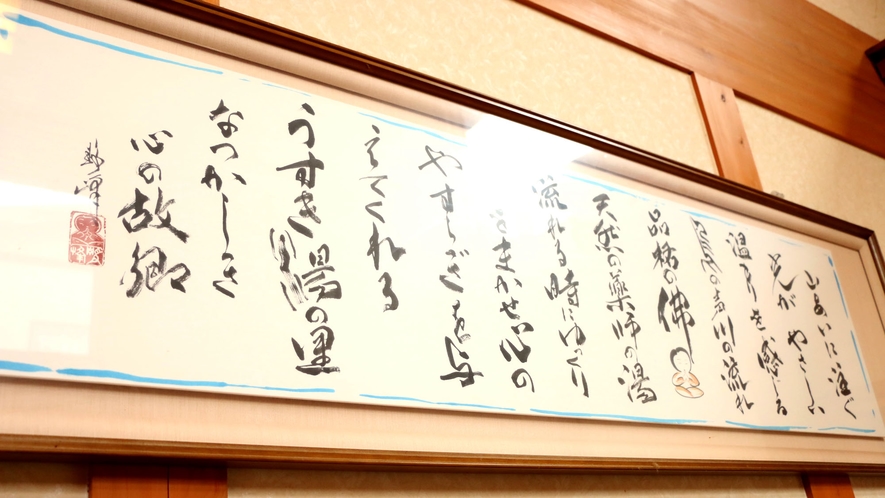 山あいに注ぐ
光が やさしい
温もりを感じる
の清川の流れ
品格の佛
天然の薬師の湯
流れる時にゆっくり
まかせ心の
やすらぎを
くれる
うすき湯の里
なつかしき
心の故郷